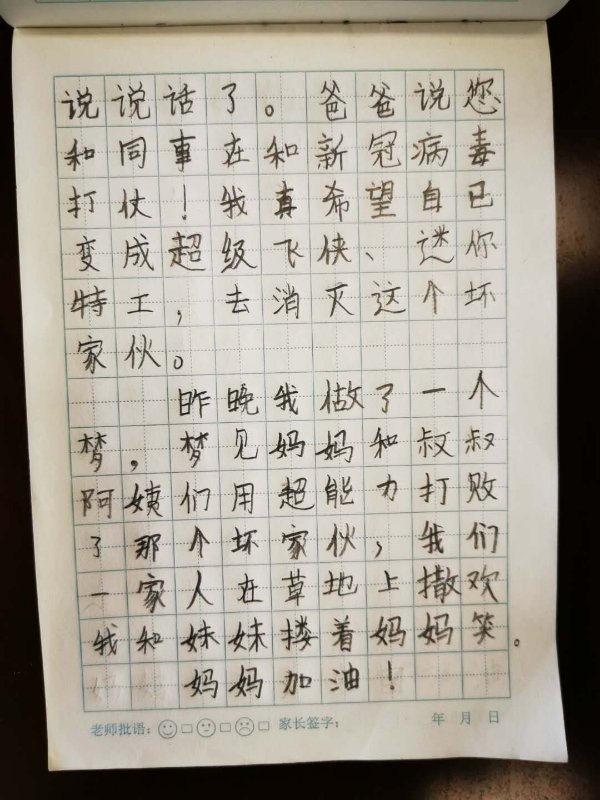 说说话了。爸爸说您
和同事在和新冠病毒
打仗！我真希望自己
变成超级飞侠、迷你
特工，去消灭这个坏
家伙。
昨晚我做了一个
梦，梦见妈妈和叔叔
阿姨们用超能力打败
了那个坏家伙，我们
一家人在草地上撒欢
我和妹妹搂着妈妈笑。
妈妈加油！
老师批语：□□□ 家长签字： 年 月 日